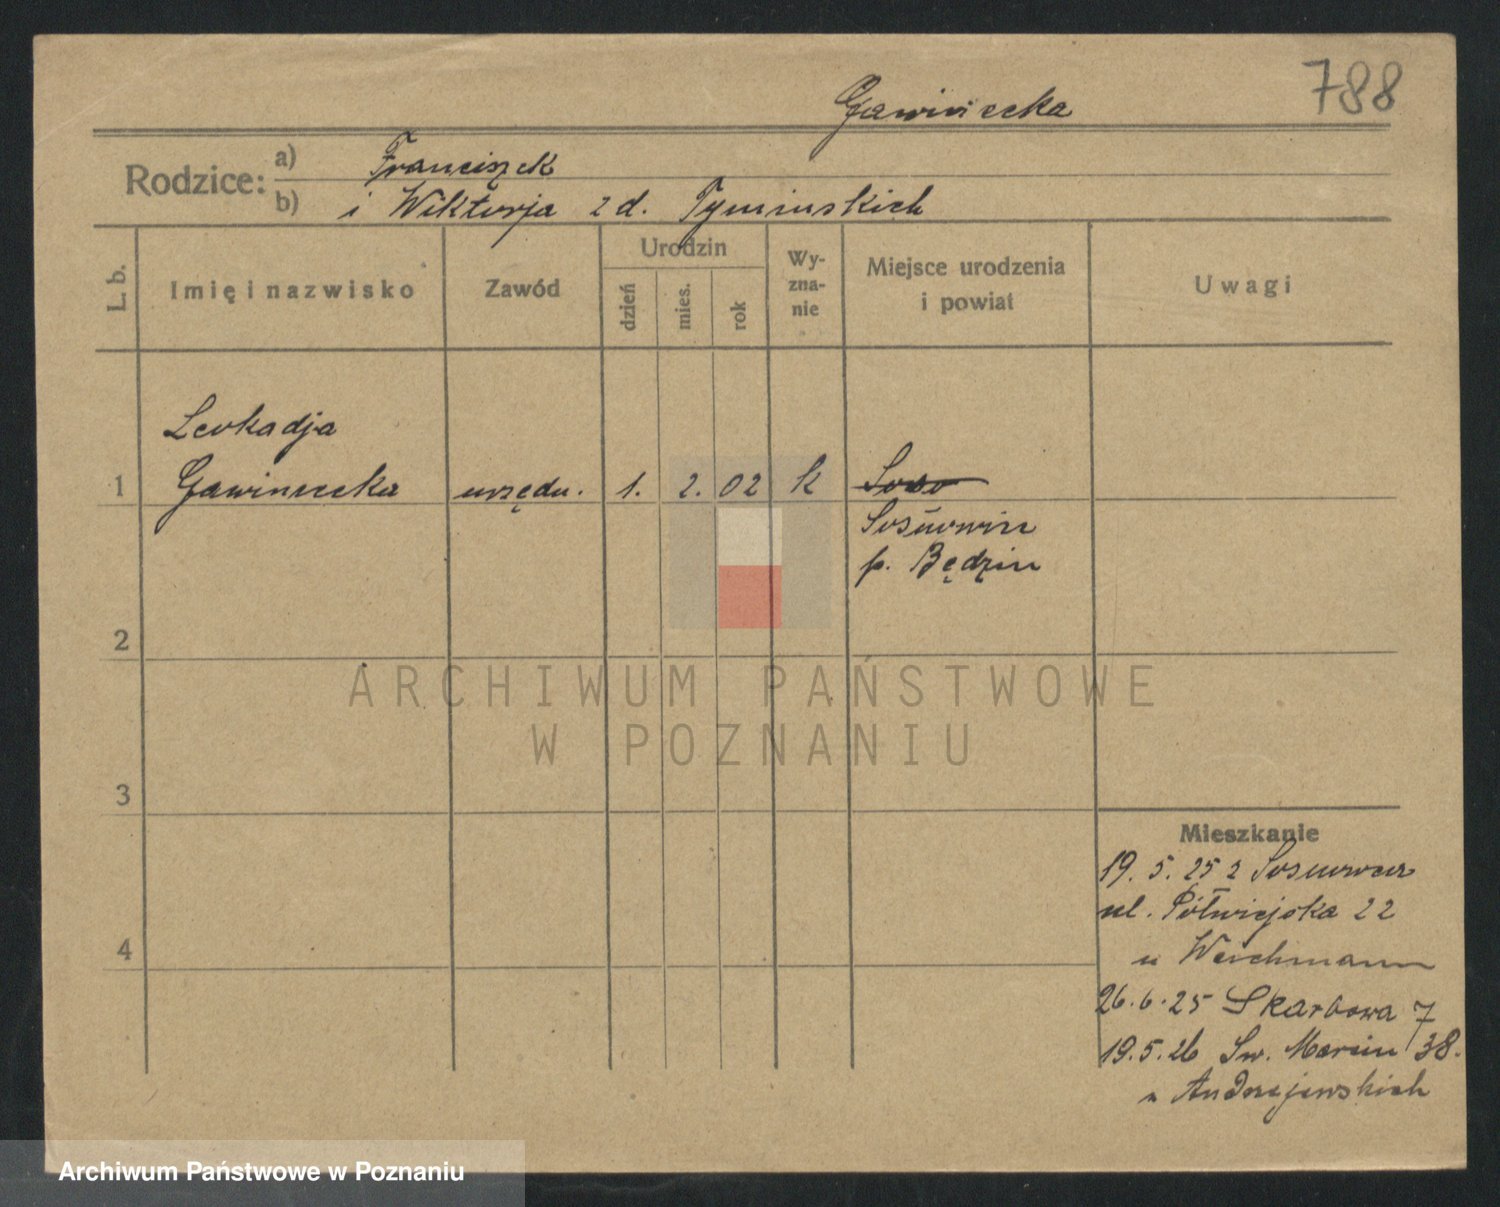 788
Gawinecka
Rodzice: a) Franciszek
b) i Wiktorja z d. Tyminskich
L. b.
Imię i nazwisko
Zawód
Urodzin
dzień
mies.
rok
Wy-
zna-
nie
Miejsce urodzenia
i powiat
Uwagi
Leokadja
1 Gawinecka urzędn. 1. 2. 02 k Soso
Sosnowiec
p. Będzin
2
3
4
Mieszkanie
19. 5. 25 z Sosnowca
ul. Półwiejska 22
u Weichmann
26. 6. 25 Skarbowa 7
19. 5. 26 Św. Marcin 38.
u Andrzejewskich
ARCHIWUM PAŃSTWOWE
W POZNANIU
Archiwum Państwowe w Poznaniu